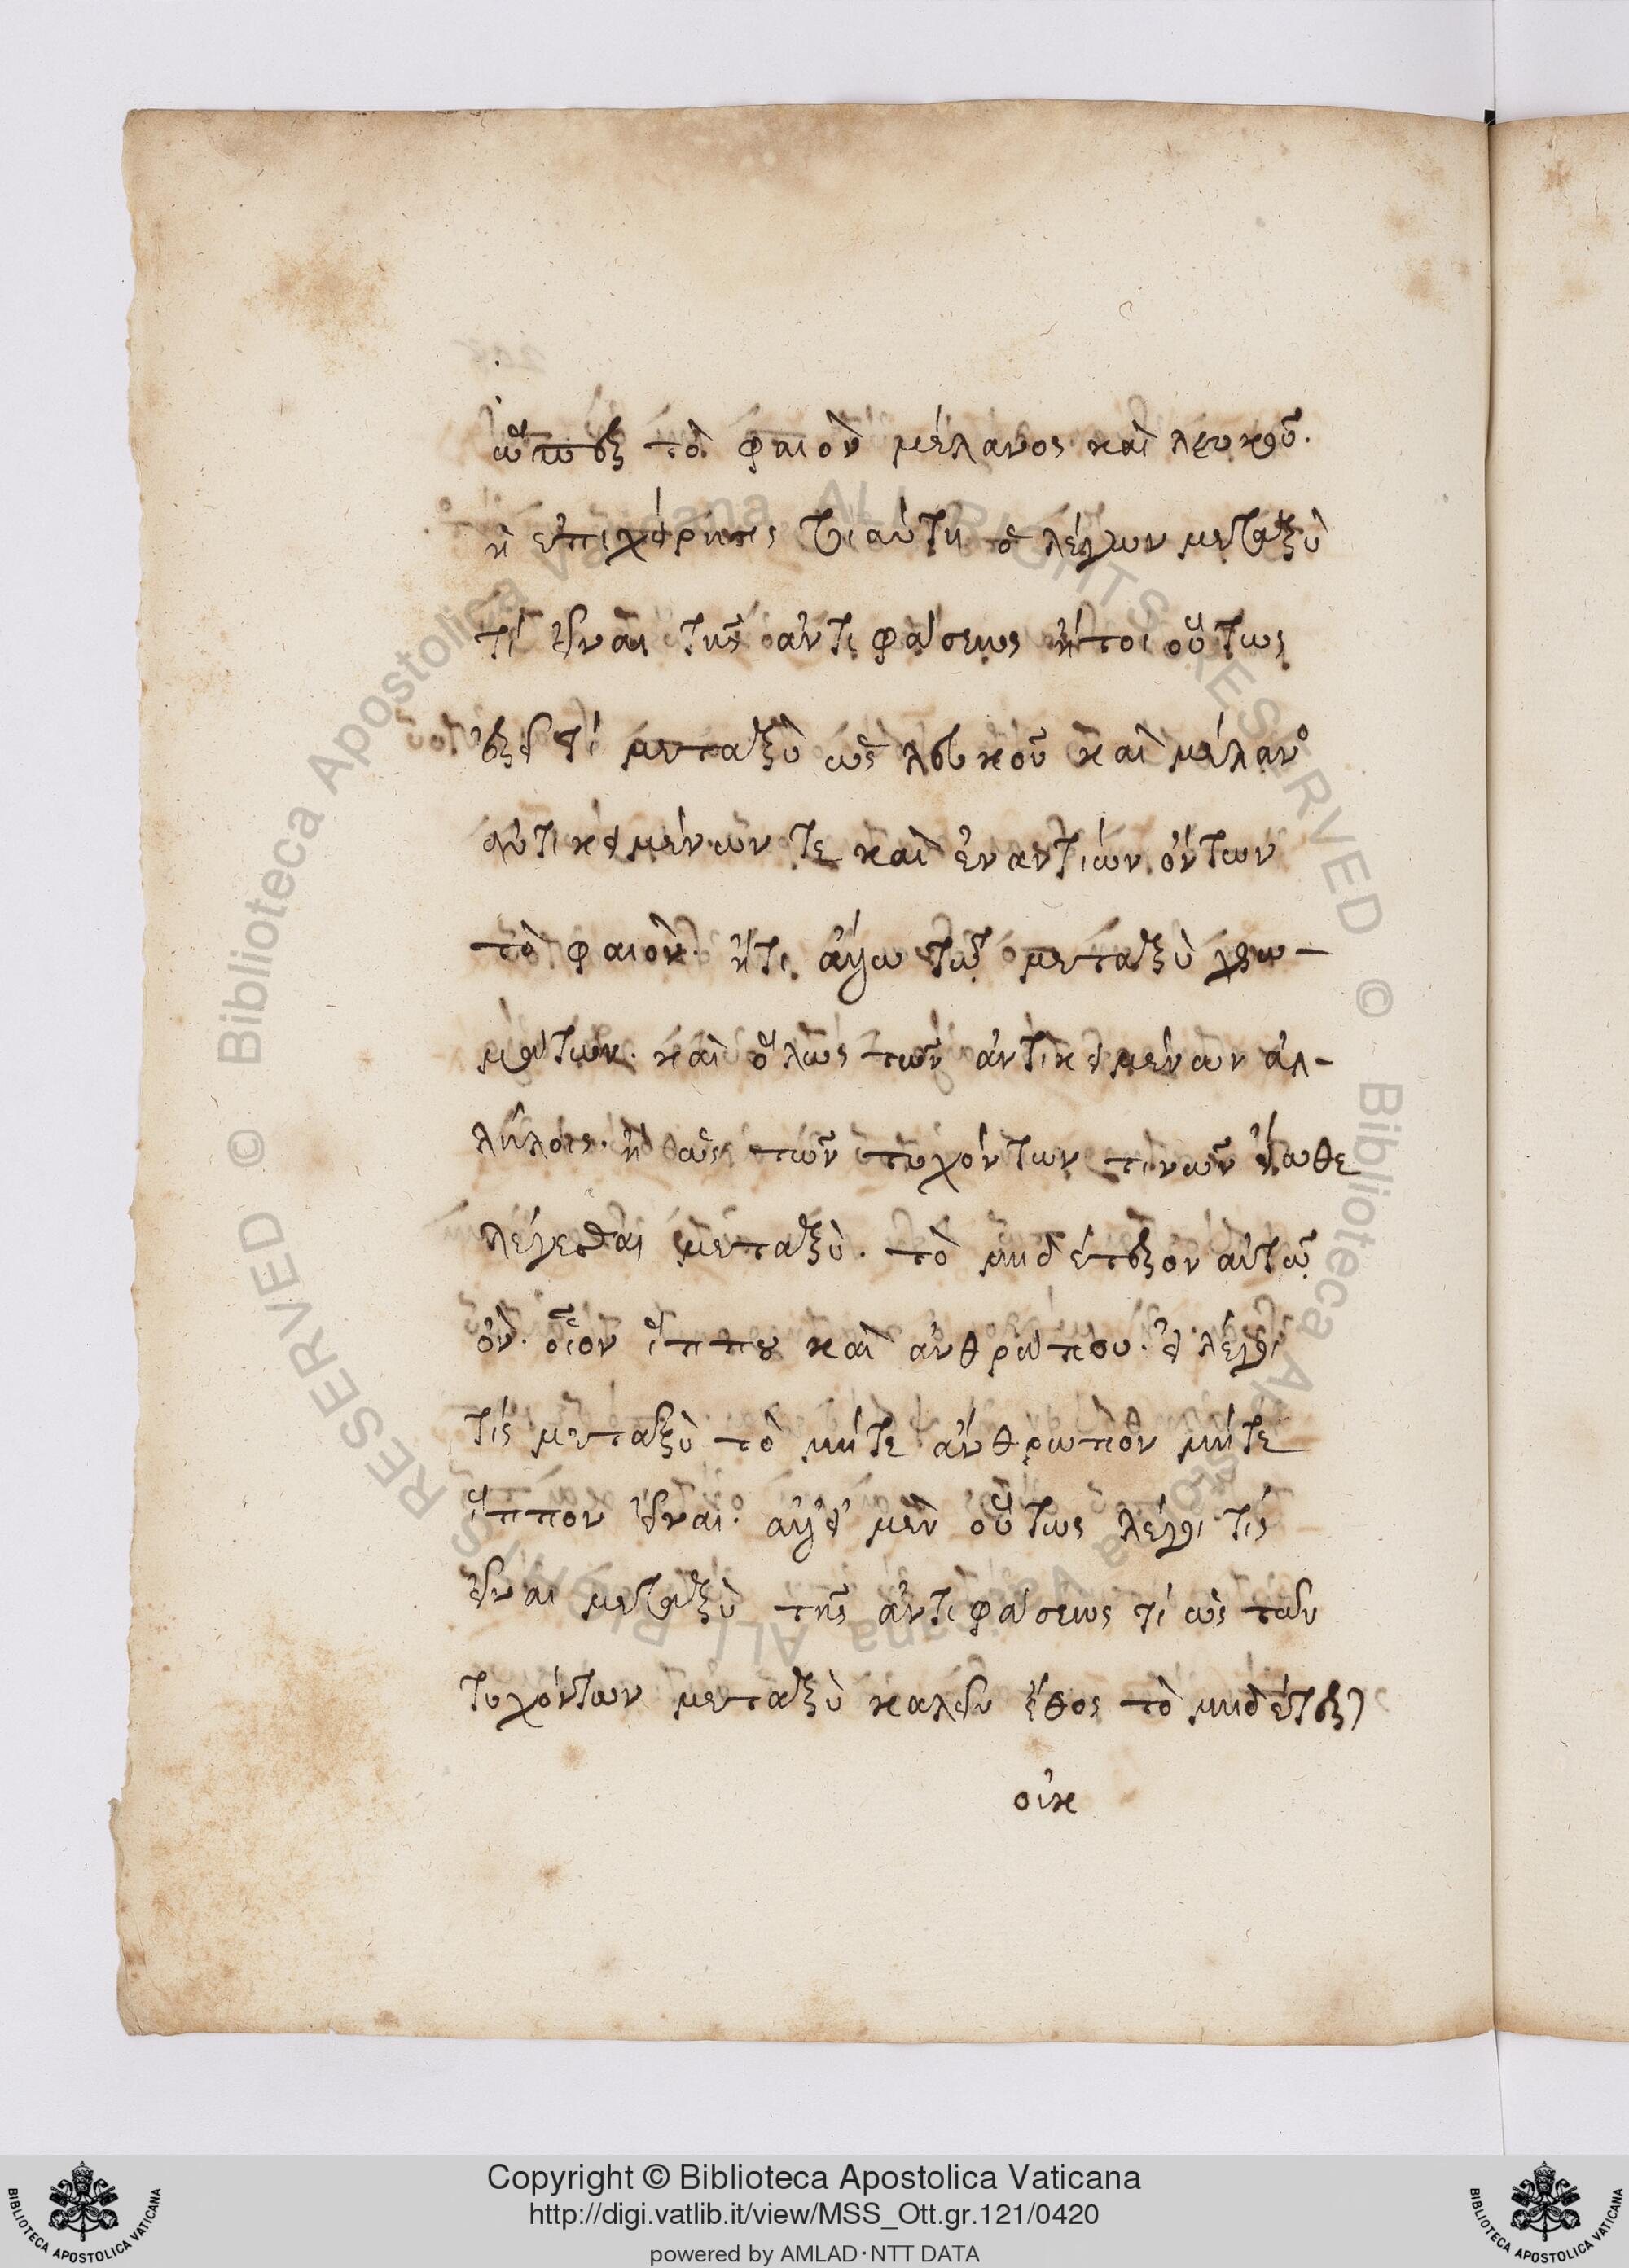 ὥσπερ τὸ φαιὸν μέλανος καὶ λευκοῦ.
ἡ ἐπιχείρησις τοιαύτη ὁ λέγων μεταξὺ
τί εἶναι τῆς ἀντιφάσεως ἤτοι οὕτως
ἐρεῖ τί μεταξὺ ὡς λευκοῦ καὶ μέλανος
ἀντικειμένων τε καὶ ἐναντίων ὄντων
τὸ φαιὸν. ἤτι ἄλλω τῶ μεταξὺ χρω-
μάτων. καὶ ὅλως τῶν ἀντικειμένων ἀλ-
λήλοις. ἢ ὡς τῶν τυχόντων τινῶν εἴωθε
λέγεσθαι μεταξὺ. τὸ μηδέτερον αὐτῶ
ὂν. οἷον ἵππου καὶ ἀνθρώπου. εἰ λέγει
τίς μεταξὺ τὸ μήτε ἄνθρωπον μήτε
ἵππον εἶναι. ἀλλ' εἰ μὲν οὕτως λέγει τίς
εἶναι μεταξὺ τῆς ἀντιφάσεως τί ὡς τῶν
τυχόντων μεταξὺ καλεῖν ἔθος τὸ μηδέτερον
οὐκ
Copyright © Biblioteca Apostolica Vaticana
http://digi.vatlib.it/view/MSS_Ott.gr.121/0420
powered by AMLAD·NTT DATA
BIBLIOTECA APOSTOLICA VATICANA
BIBLIOTECA APOSTOLICA VATICANA
© Biblioteca Apostolica Vaticana ALL RIGHTS RESERVED © Biblioteca Apostolica Vaticana ALL RIGHTS RESERVED